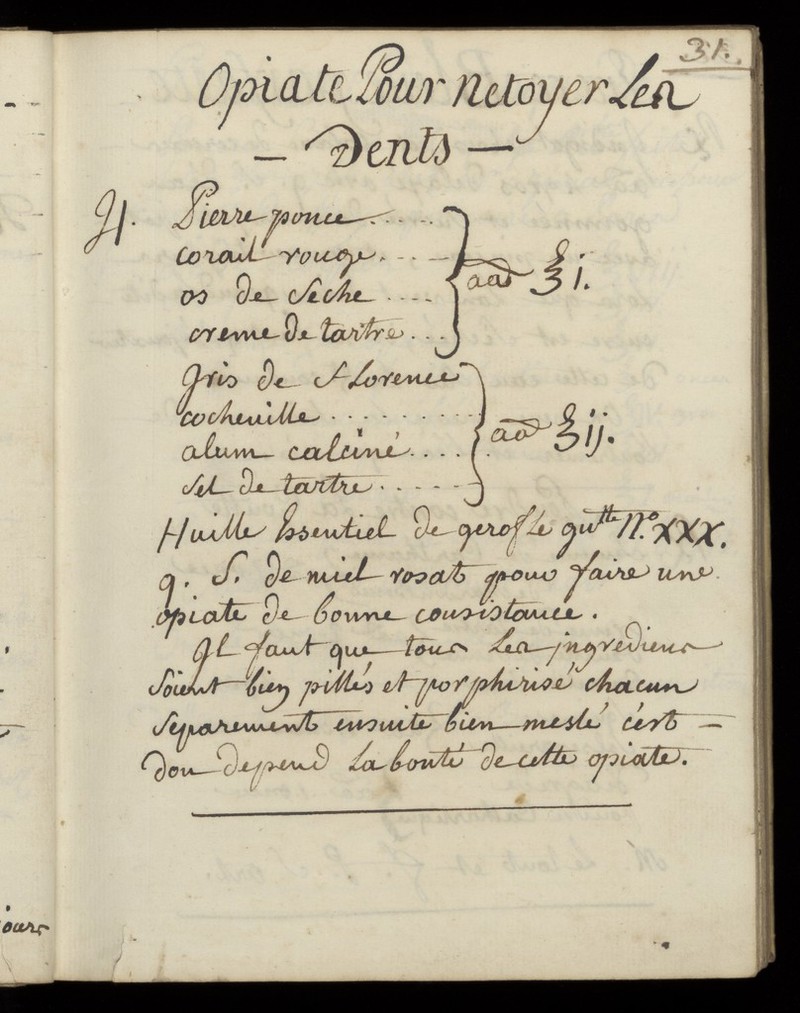 31.
Opiate Pour netoyer Les
— Dents —
♃. Pierre ponce.....
corail rouge....
os de seche ....
creme de tartre... } aa ℥ i.
Iris de florence
cochenille ..........
alum calciné.....
sel de tartre...... } aa ℥ ij.
Huille Essentiel de gerofle gutte N.º XXX.
q. S. de miel rosat pour faire une
opiate de bonne consistance.
Il faut que tous Les jngrediens
soient bien pillés et porphirisé chacun
separement ensuite bien meslé cést —
don depend La bonté de cette opiate.
jours